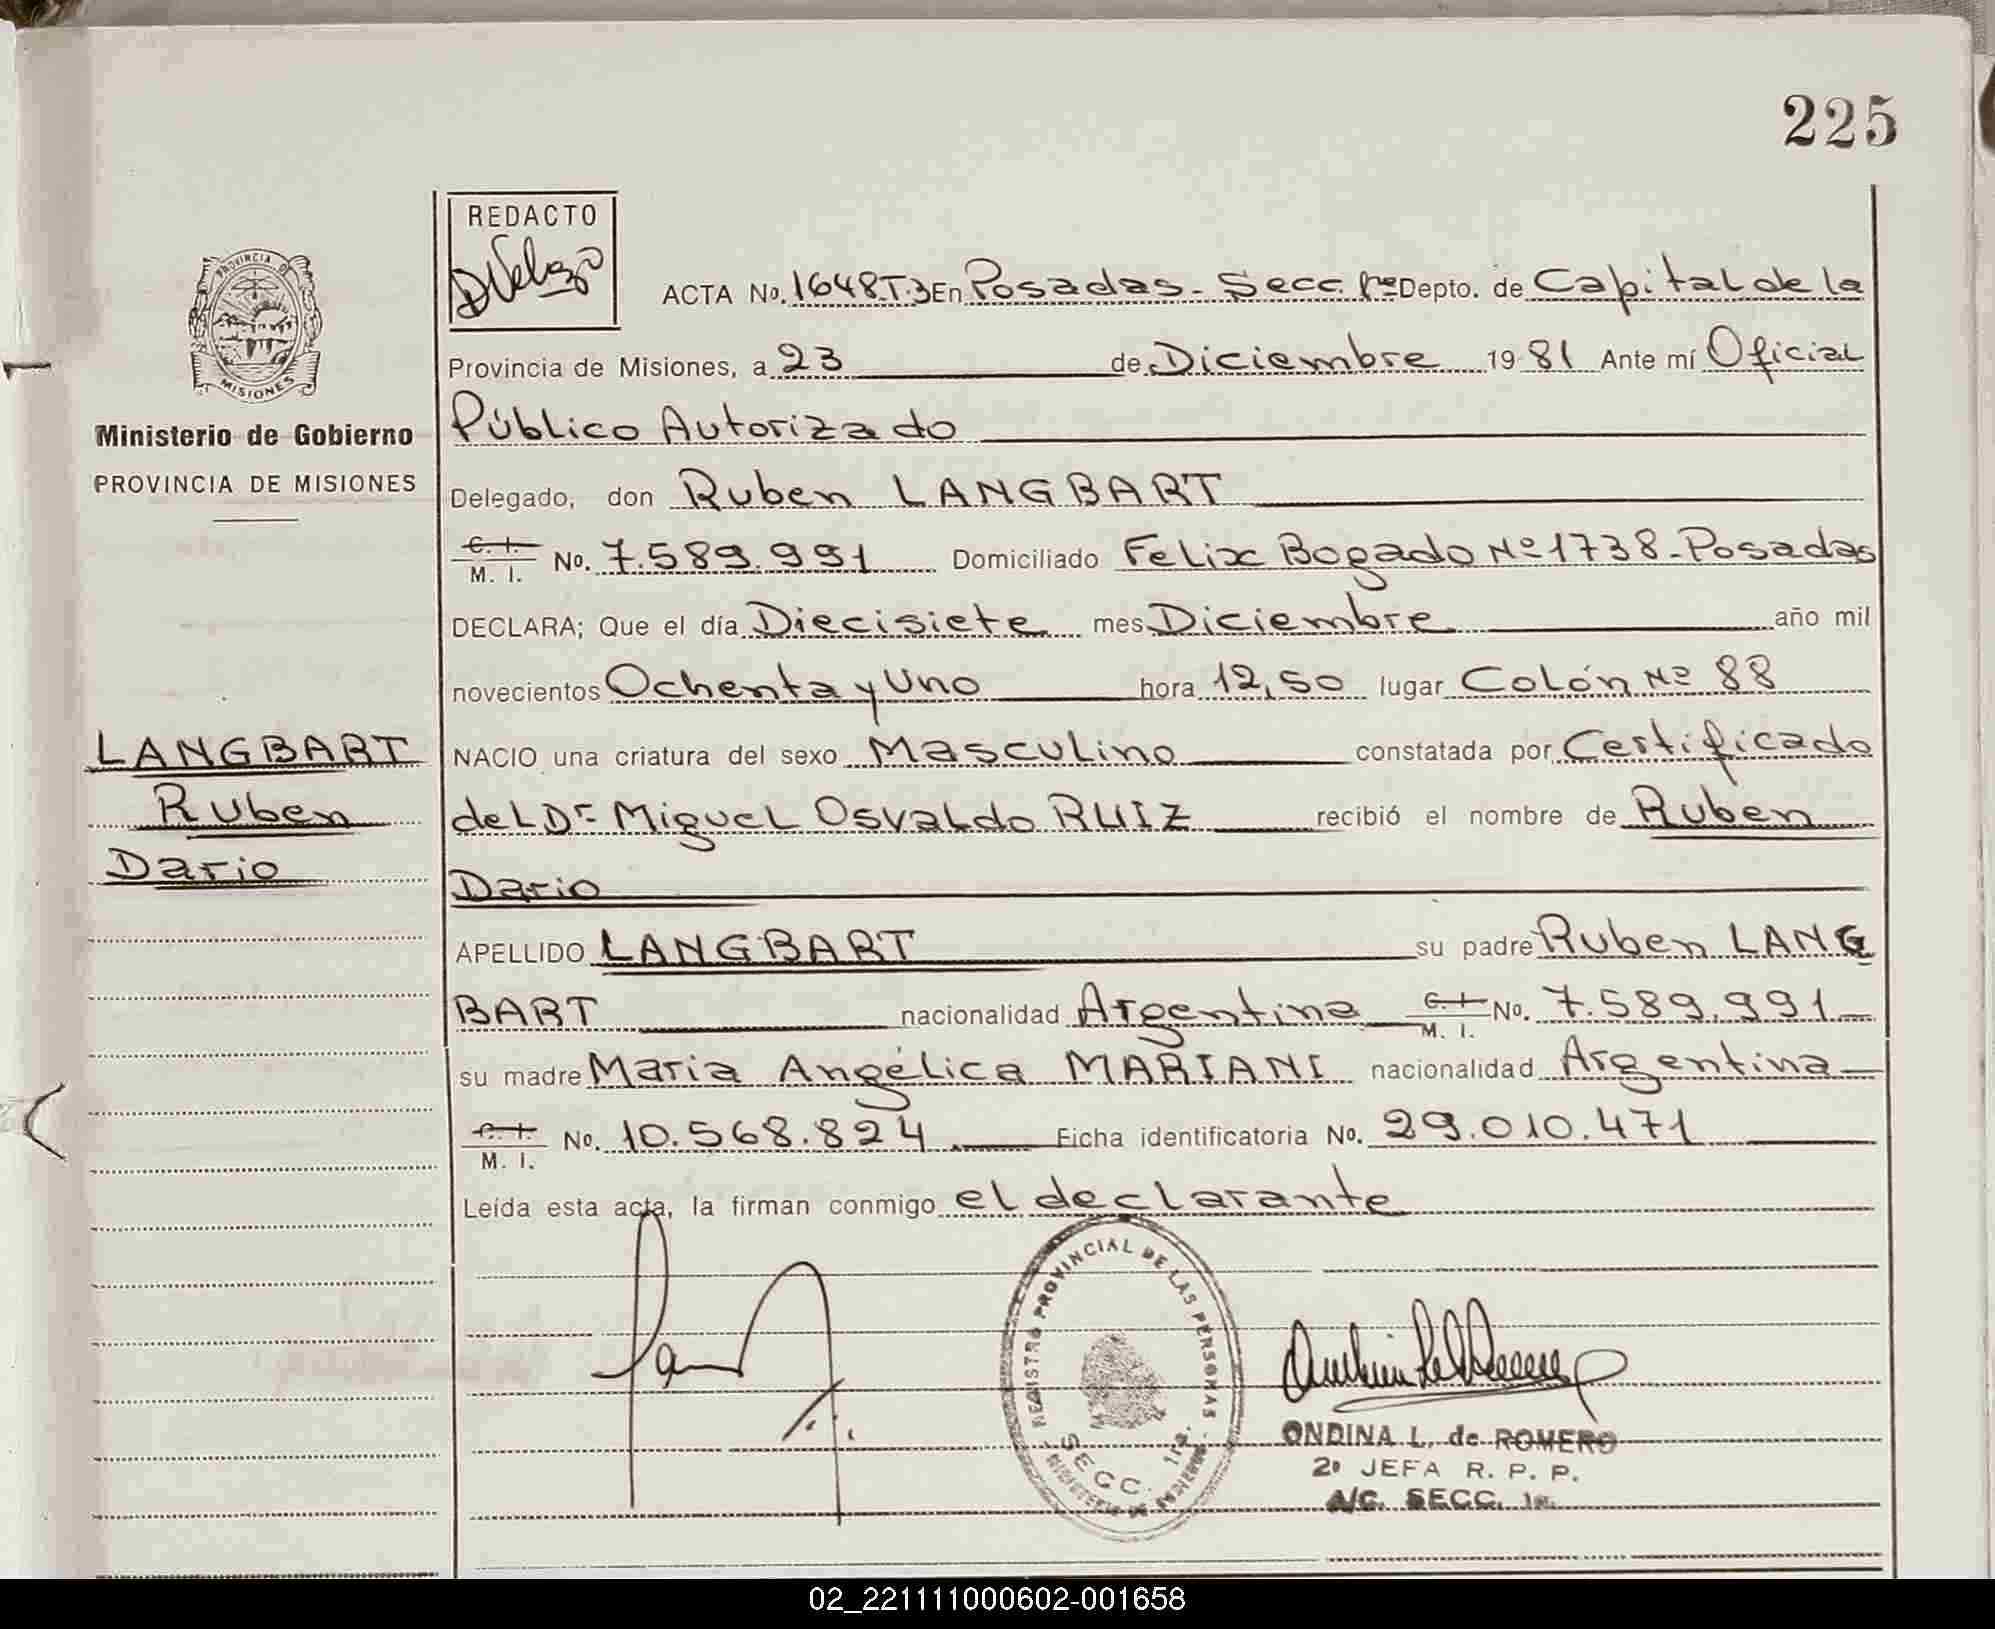 225
REDACTO
DVelazo
PROVINCIA DE
MISIONES
Ministerio de Gobierno
PROVINCIA DE MISIONES
ACTA No. 1648.T.3 En Posadas - Secc. 1ra Depto. de Capital de la
Provincia de Misiones, a 23 de Diciembre 1981 Ante mí Oficial
Público Autorizado
Delegado, don Ruben LANGBART
C. I. M. I. No. 7.589.991 Domiciliado Felix Bogado Nº 1738 - Posadas
DECLARA; Que el día Diecisiete mes Diciembre año mil
novecientos Ochenta y Uno hora 12,50 lugar Colón Nº 88
LANGBART
Ruben
Dario
NACIO una criatura del sexo Masculino constatada por Certificado
del Dr. Miguel Osvaldo RUIZ recibió el nombre de Ruben
Dario
APELLIDO LANGBART su padre Ruben LANG
BART nacionalidad Argentina C. I. M. I. No. 7.589.991
su madre Maria Angélica MARIANI nacionalidad Argentina
C. I. M. I. No. 10.568.824 Ficha identificatoria No. 29.010.471
Leída esta acta, la firman conmigo el declarante
REGISTRO PROVINCIAL DE LAS PERSONAS
SECC. 1ra.
MINISTERIO DE GOBIERNO
ONDINA L. de ROMERO
2º JEFA R. P. P.
A/C. SECC. 1a.
02_221111000602-001658